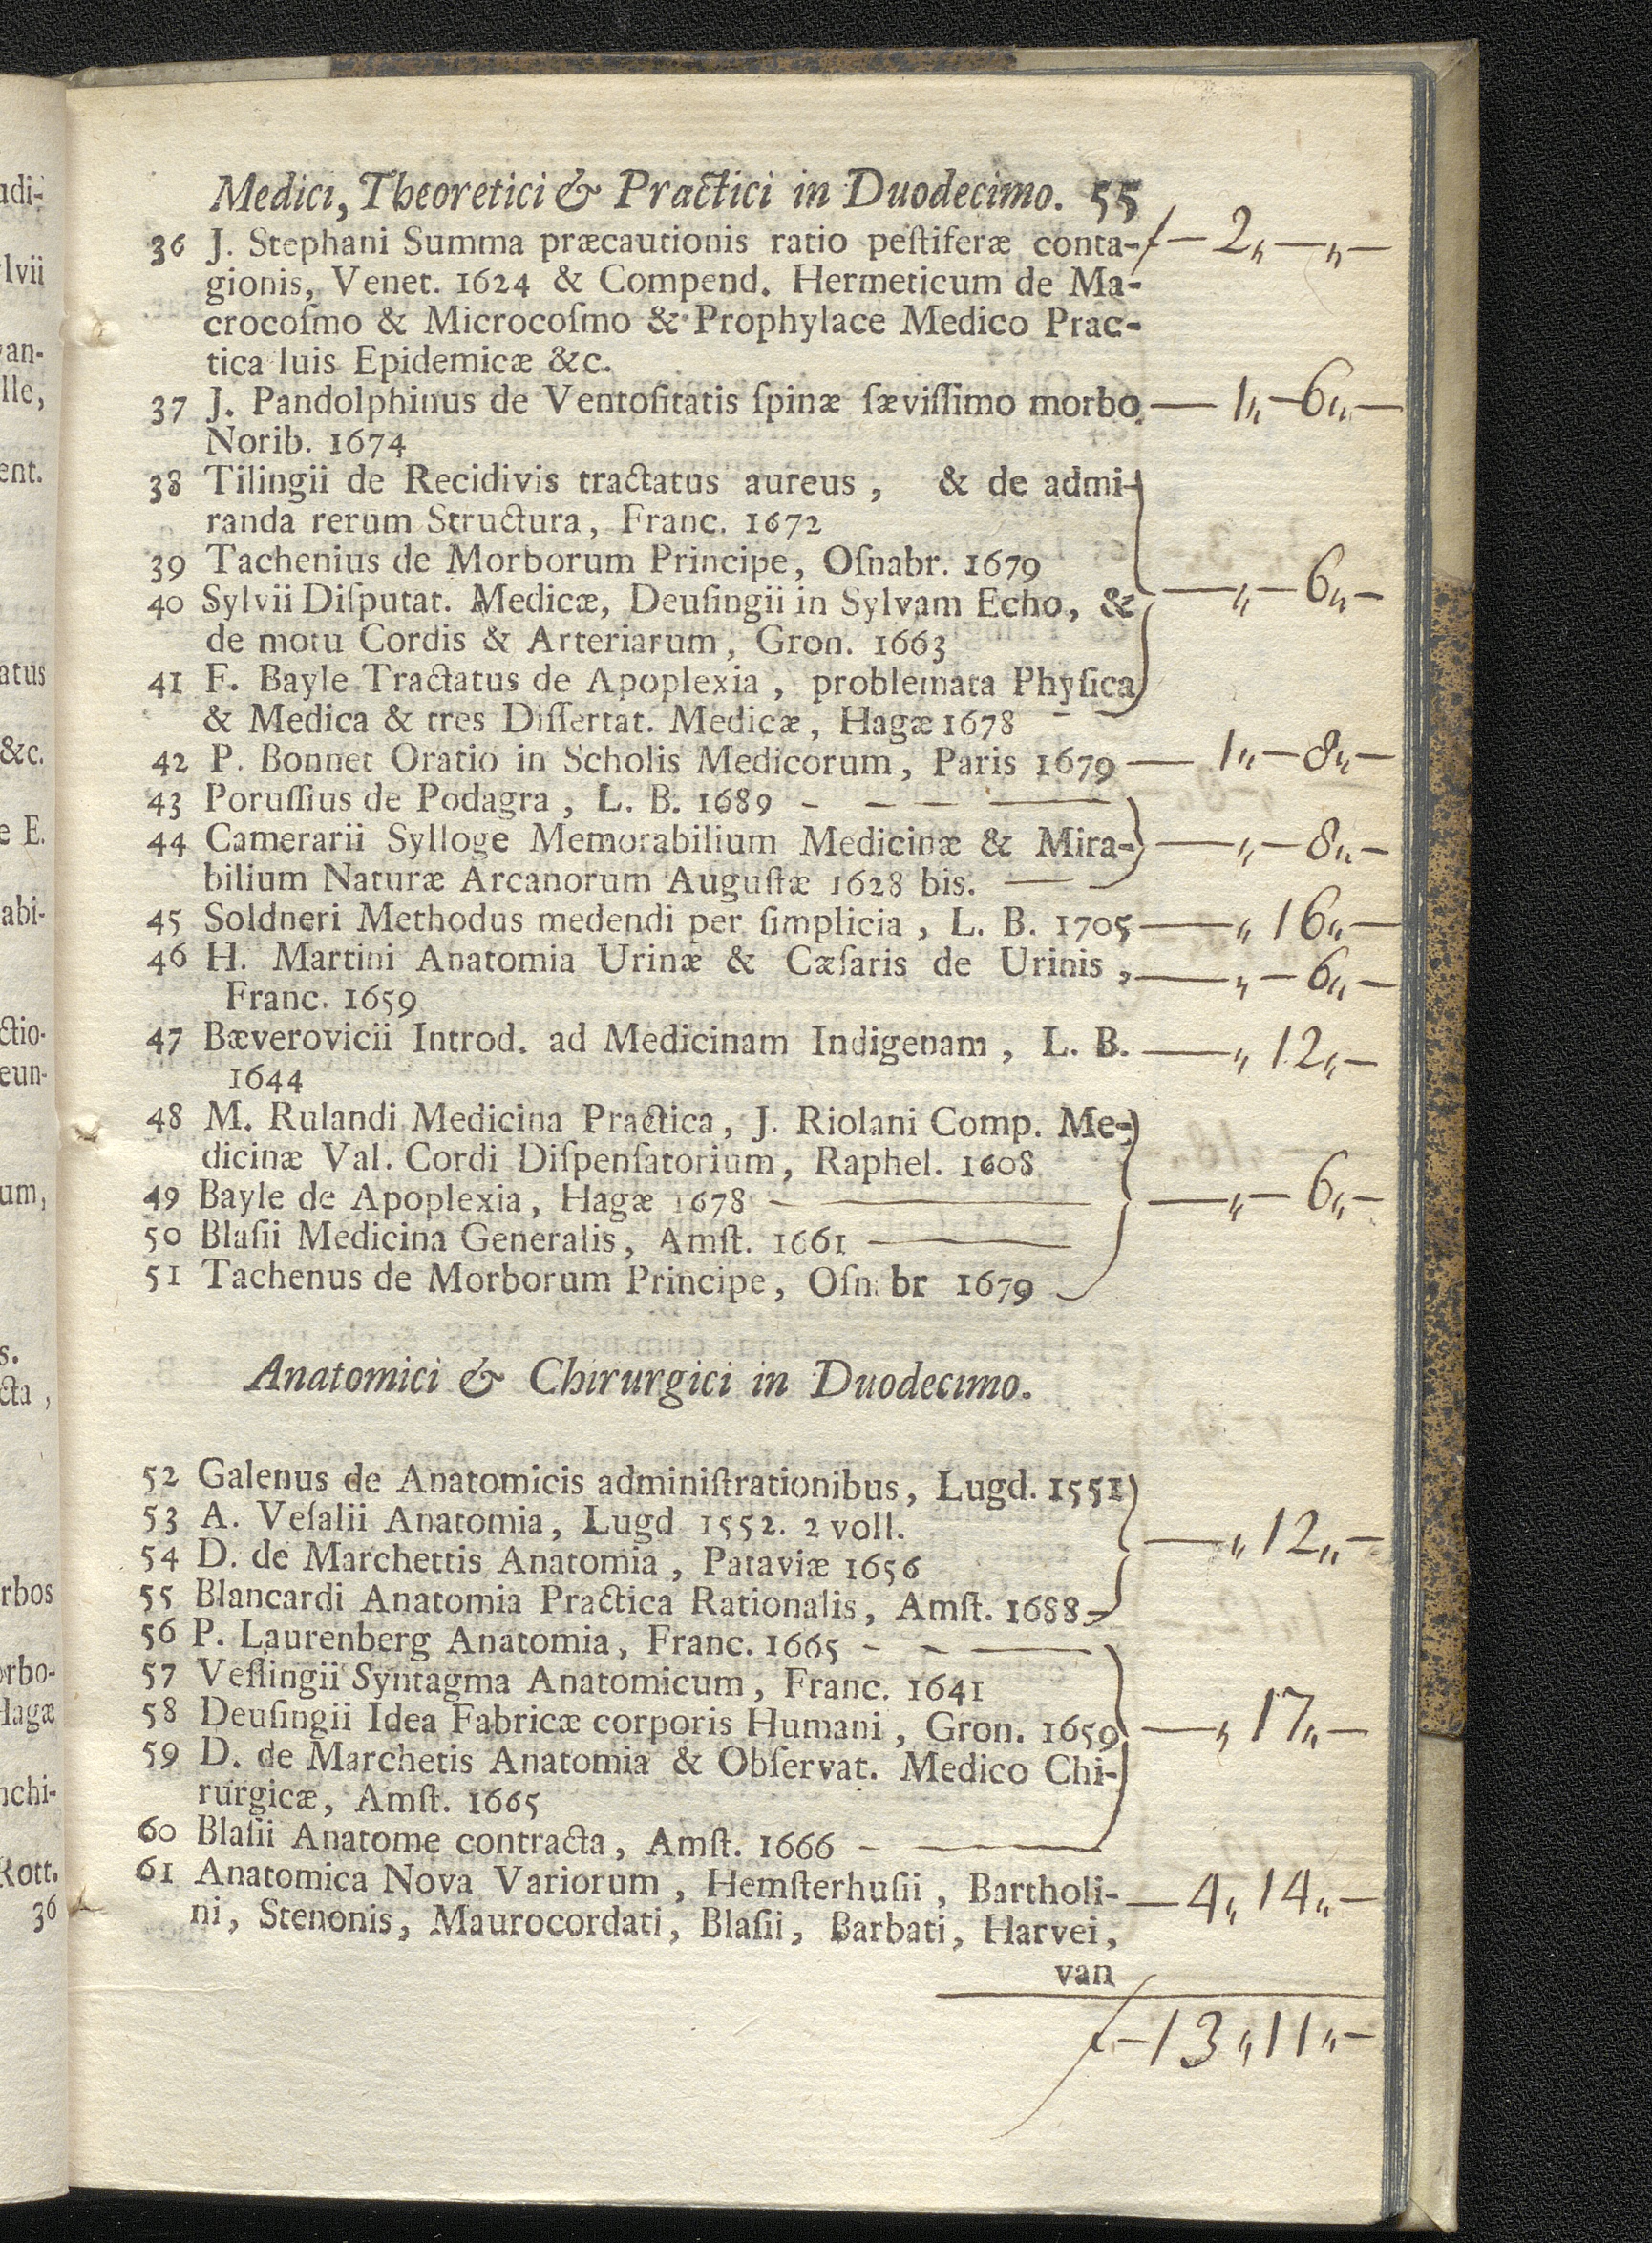 Medici, Theoretici & Practici in Duodecimo. 55
36 J. Stephani Summa præcautionis ratio peſtiferæ conta- f — 2 „ — „ —
gionis, Venet. 1624 & Compend. Hermeticum de Ma-
crocoſmo & Microcoſmo & Prophylace Medico Prac-
tica luis Epidemicæ &c.
37 J. Pandolphinus de Ventoſitatis ſpinæ ſæviſſimo morbo — 1 „ — 6 „ —
Norib. 1674
38 Tilingii de Recidivis tractatus aureus, & de admi-
randa rerum Structura, Franc. 1672
39 Tachenius de Morborum Principe, Oſnabr. 1679
40 Sylvii Diſputat. Medicæ, Deuſingii in Sylvam Echo, & — „ — 6 „ —
de motu Cordis & Arteriarum, Gron. 1663
41 F. Bayle Tractatus de Apoplexia, problemata Phyſica
& Medica & tres Diſſertat. Medicæ, Hagæ 1678
42 P. Bonnet Oratio in Scholis Medicorum, Paris 1679 — 1 „ — 8 „ —
43 Poruſſius de Podagra, L. B. 1689 - - - —
44 Camerarii Sylloge Memorabilium Medicinæ & Mira- — „ — 8 „ —
bilium Naturæ Arcanorum Auguſtæ 1628 bis. —
45 Soldneri Methodus medendi per ſimplicia, L. B. 1705 — „ 16 „ —
46 H. Martini Anatomia Urinæ & Cæſaris de Urinis, — „ — 6 „ —
Franc. 1659
47 Bæverovicii Introd. ad Medicinam Indigenam, L. B. — „ 12 „ —
1644
48 M. Rulandi Medicina Practica, J. Riolani Comp. Me-
dicinæ Val. Cordi Diſpenſatorium, Raphel. 1608
49 Bayle de Apoplexia, Hagæ 1678 — — „ — 6 „ —
50 Blaſii Medicina Generalis, Amſt. 1661 —
51 Tachenus de Morborum Principe, Oſn br 1679
Anatomici & Chirurgici in Duodecimo.
52 Galenus de Anatomicis adminiſtrationibus, Lugd. 1551
53 A. Veſalii Anatomia, Lugd 1552. 2 voll. — „ 12 „ —
54 D. de Marchettis Anatomia, Pataviæ 1656
55 Blancardi Anatomia Practica Rationalis, Amſt. 1688
56 P. Laurenberg Anatomia, Franc. 1665 - - —
57 Veſlingii Syntagma Anatomicum, Franc. 1641
58 Deuſingii Idea Fabricæ corporis Humani, Gron. 1659 — „ 17 „ —
59 D. de Marchetis Anatomia & Obſervat. Medico Chi-
rurgicæ, Amſt. 1665
60 Blaſii Anatome contracta, Amſt. 1666 - —
61 Anatomica Nova Variorum, Hemſterhuſii, Bartholi- — 4 „ 14 „ —
ni, Stenonis, Maurocordati, Blaſii, Barbati, Harvei,
van
f — 13 „ 11 „ —
udi-
lvii
van-
lle,
ent.
atus
&c.
e E.
abi-
ctio-
eun-
um,
s.
cta,
rbos
orbo-
Hagæ
nchi-
Rott.
36